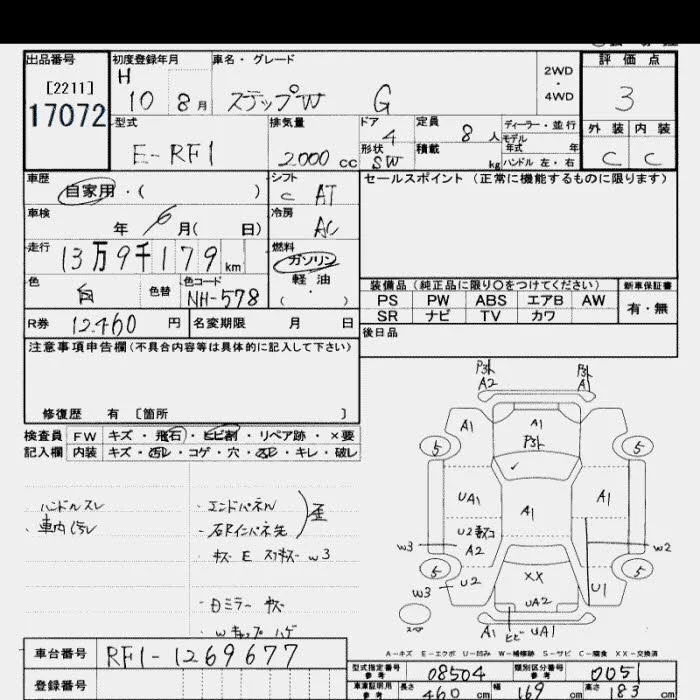 出品番号
[2211]
17072
初度登録年月
H
10 8月
車名・グレード
ステップW G
2WD
・
4WD
評価点
3
型式
E-RF1
排気量
2000 cc
ドア
4
形状
SW
定員
8人
積載
kg
ディーラー・並行
モデル
年式 年
ハンドル 左・右
外装 内装
C C
車歴
自家用・( )
シフト
C AT
セールスポイント (正常に機能するものに限ります)
車検
年 6月( 日)
冷房
AC
走行
13万9千179km
燃料
ガソリン
軽油
( ・ )
色
白
色替
色コード
NH-578
装備品 (純正品に限り○をつけてください)
新車保証書
PS PW ABS エアB AW
有・無
SR ナビ TV カワ
R券 12460円
名変期限 月 日
後日品
注意事項申告欄(不具合内容等は具体的に記入して下さい)
修復歴 有 〔箇所 〕
検査員 FW キズ・飛石・ヒビ割・リペア跡・×要
記入欄 内装 キズ・汚レ・コゲ・穴・・キレ・破レ
ハンドルスレ
車内汚レ
・エンドパネル
・右Rインパネ先
歪
・キズ E W3
・白ミラー キズ
・Wキャップハゲ
A2
A
A1
A1
5
5
UA1
A1
A1
U2
A2
W3
W2
5
5
U2
XX
U1
W3
UA2
A1
ヒビ
UA1
A-キズ E-エクボ U-凹み W-補修跡 S-サビ C-腐食 XX-交換済
車台番号 RF1-1269677
登録番号
型式指定番号
参考
08504
類別区分番号
参考
0051
車庫証明用
参考
長さ
460 cm
幅
169 cm
高さ
183 cm